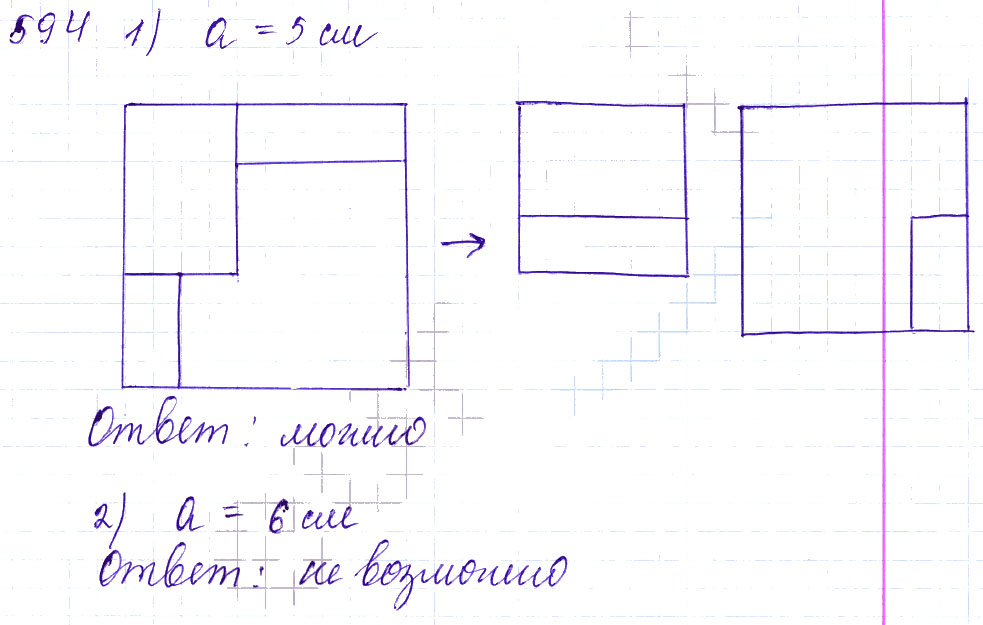 594 1) a = 5 см
Ответ: можно
2) a = 6 см
Ответ: не возможно